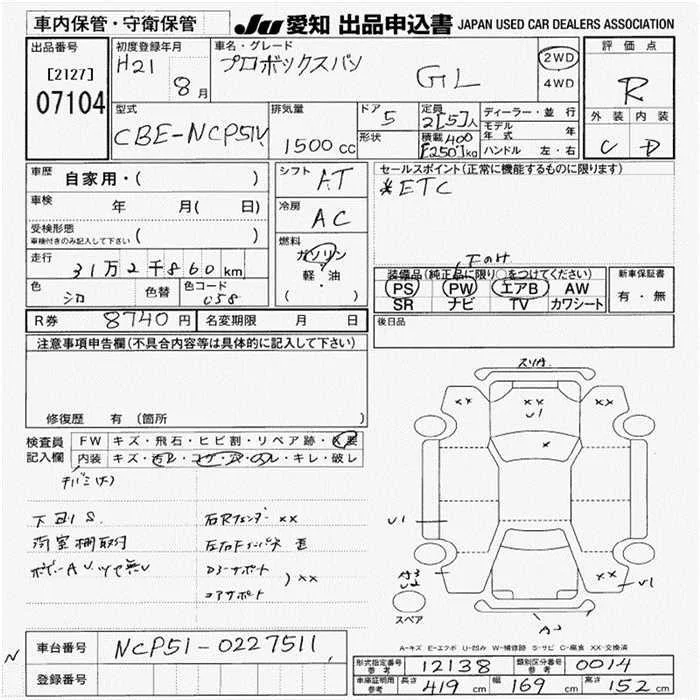 車内保管・守衛保管
JU 愛知 出品申込書 JAPAN USED CAR DEALERS ASSOCIATION
出品番号
[2127]
07104
初度登録年月
H21
8月
車名・グレード
プロボックスバン
GL
2WD
4WD
評価点
R
外装 内装
C D
型式
CBE-NCP51V
排気量
1500 cc
ドア
5
形状
定員
2[5]人
積載 400
[250]kg
ディーラー・並行
モデル年式 年
ハンドル 左・右
車歴
自家用・( )
車検
年 月( 日)
受検形態
車検付きのみ記入して下さい ( )
走行
31万2千860km
色
シロ
色替
色コード
058
シフト
AT
冷房
AC
燃料
ガソリン
軽・油
( )
セールスポイント(正常に機能するものに限ります)
*ETC
装備品(純正品に限り○をつけてください)
PS PW エアB AW
SR ナビ TV カワシート
新車保証書
有・無
R券 8740円 名変期限 月 日
後日品
注意事項申告欄(不具合内容等は具体的に記入して下さい)
修復歴 有 (箇所 )
検査員
記入欄
FW キズ・飛石・ヒビ割・リペア跡・X要
内装 キズ・汚れ・コゲ・穴・スレ・キレ・破レ
下回りS.
荷室棚取付
右Rフェンダー XX
コアサポート
XX
スリキズ
XX
U1
XX
X
U1
A3
U2
XX
U1
スペア
A-キズ E-エクボ U-凹み W-補修跡 S-サビ C-腐食 XX-交換済
N
車台番号 NCP51-0227511
登録番号
形式指定番号 参考 12138 類別区分番号 参考 0014
車庫証明用 参考 長さ 419 cm 幅 169 cm 高さ 152 cm